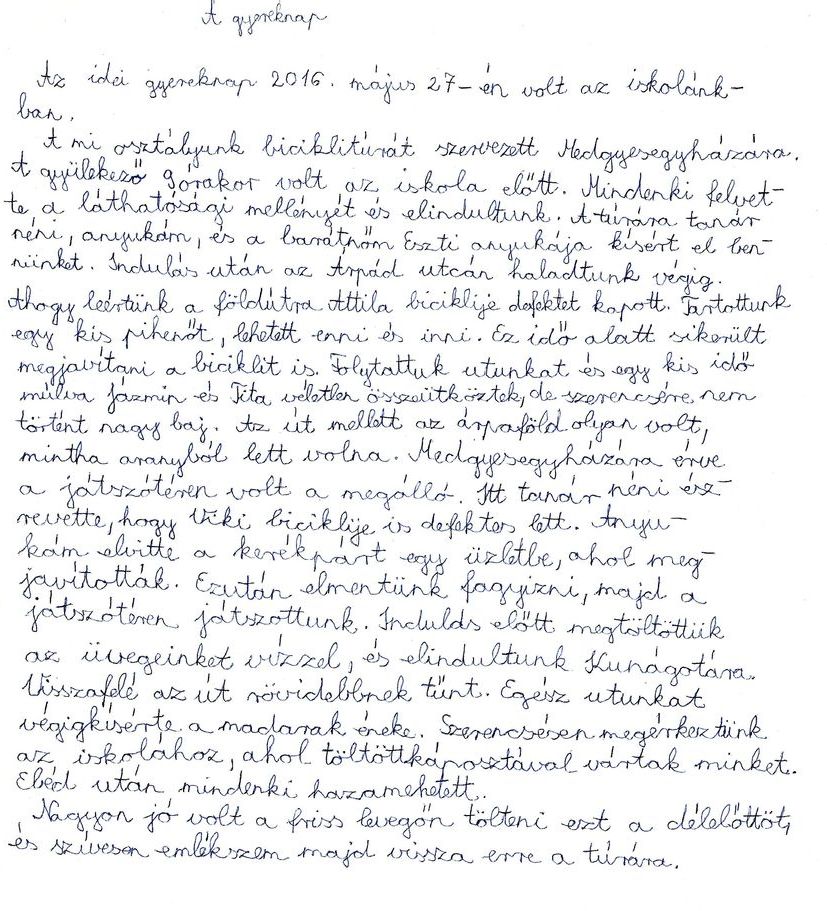 A gyereknap
Az idei gyereknap 2016. május 27-én volt az iskolánk-
ban.
A mi osztályunk biciklitúrát szervezett Medgyesegyházára.
A gyülekező 9órakor volt az iskola előtt. Mindenki felvet-
te a láthatósági mellényét és elindultunk. A túrára tanár
néni, anyukám, és a barátnőm Eszti anyukája kísért el ben-
nünket. Indulás után az Árpád utcán haladtunk végig.
Ahogy leértünk a földútra Attila biciklije defektet kapott. Tartottunk
egy kis pihenőt, lehetett enni és inni. Ez idő alatt sikerült
megjavítani a biciklit is. Folytattuk utunkat és egy kis idő
múlva Jázmin és Tita véletlen összeütköztek, de szerencsére nem
történt nagy baj. Az út mellett az árpaföld olyan volt,
mintha aranyból lett volna. Medgyesegyházára érve
a játszótéren volt a megálló. Itt tanár néni ész-
revette, hogy Viki biciklije is defektes lett. Anyu-
kám elvitte a kerékpárt egy üzletbe, ahol meg-
javították. Ezután elmentünk fagyizni, majd a
játszótéren játszottunk. Indulás előtt megtöltöttük
az üvegeinket vízzel, és elindultunk Kunágotára.
Visszafelé az út rövidebbnek tűnt. Egész utunkat
végigkísérte a madarak éneke. Szerencsésen megérkeztünk
az iskolához, ahol töltöttkáposztával vártak minket.
Ebéd után mindenki hazamehetett.
Nagyon jó volt a friss levegőn tölteni ezt a délelőttöt,
és szívesen emlékszem majd vissza erre a túrára.